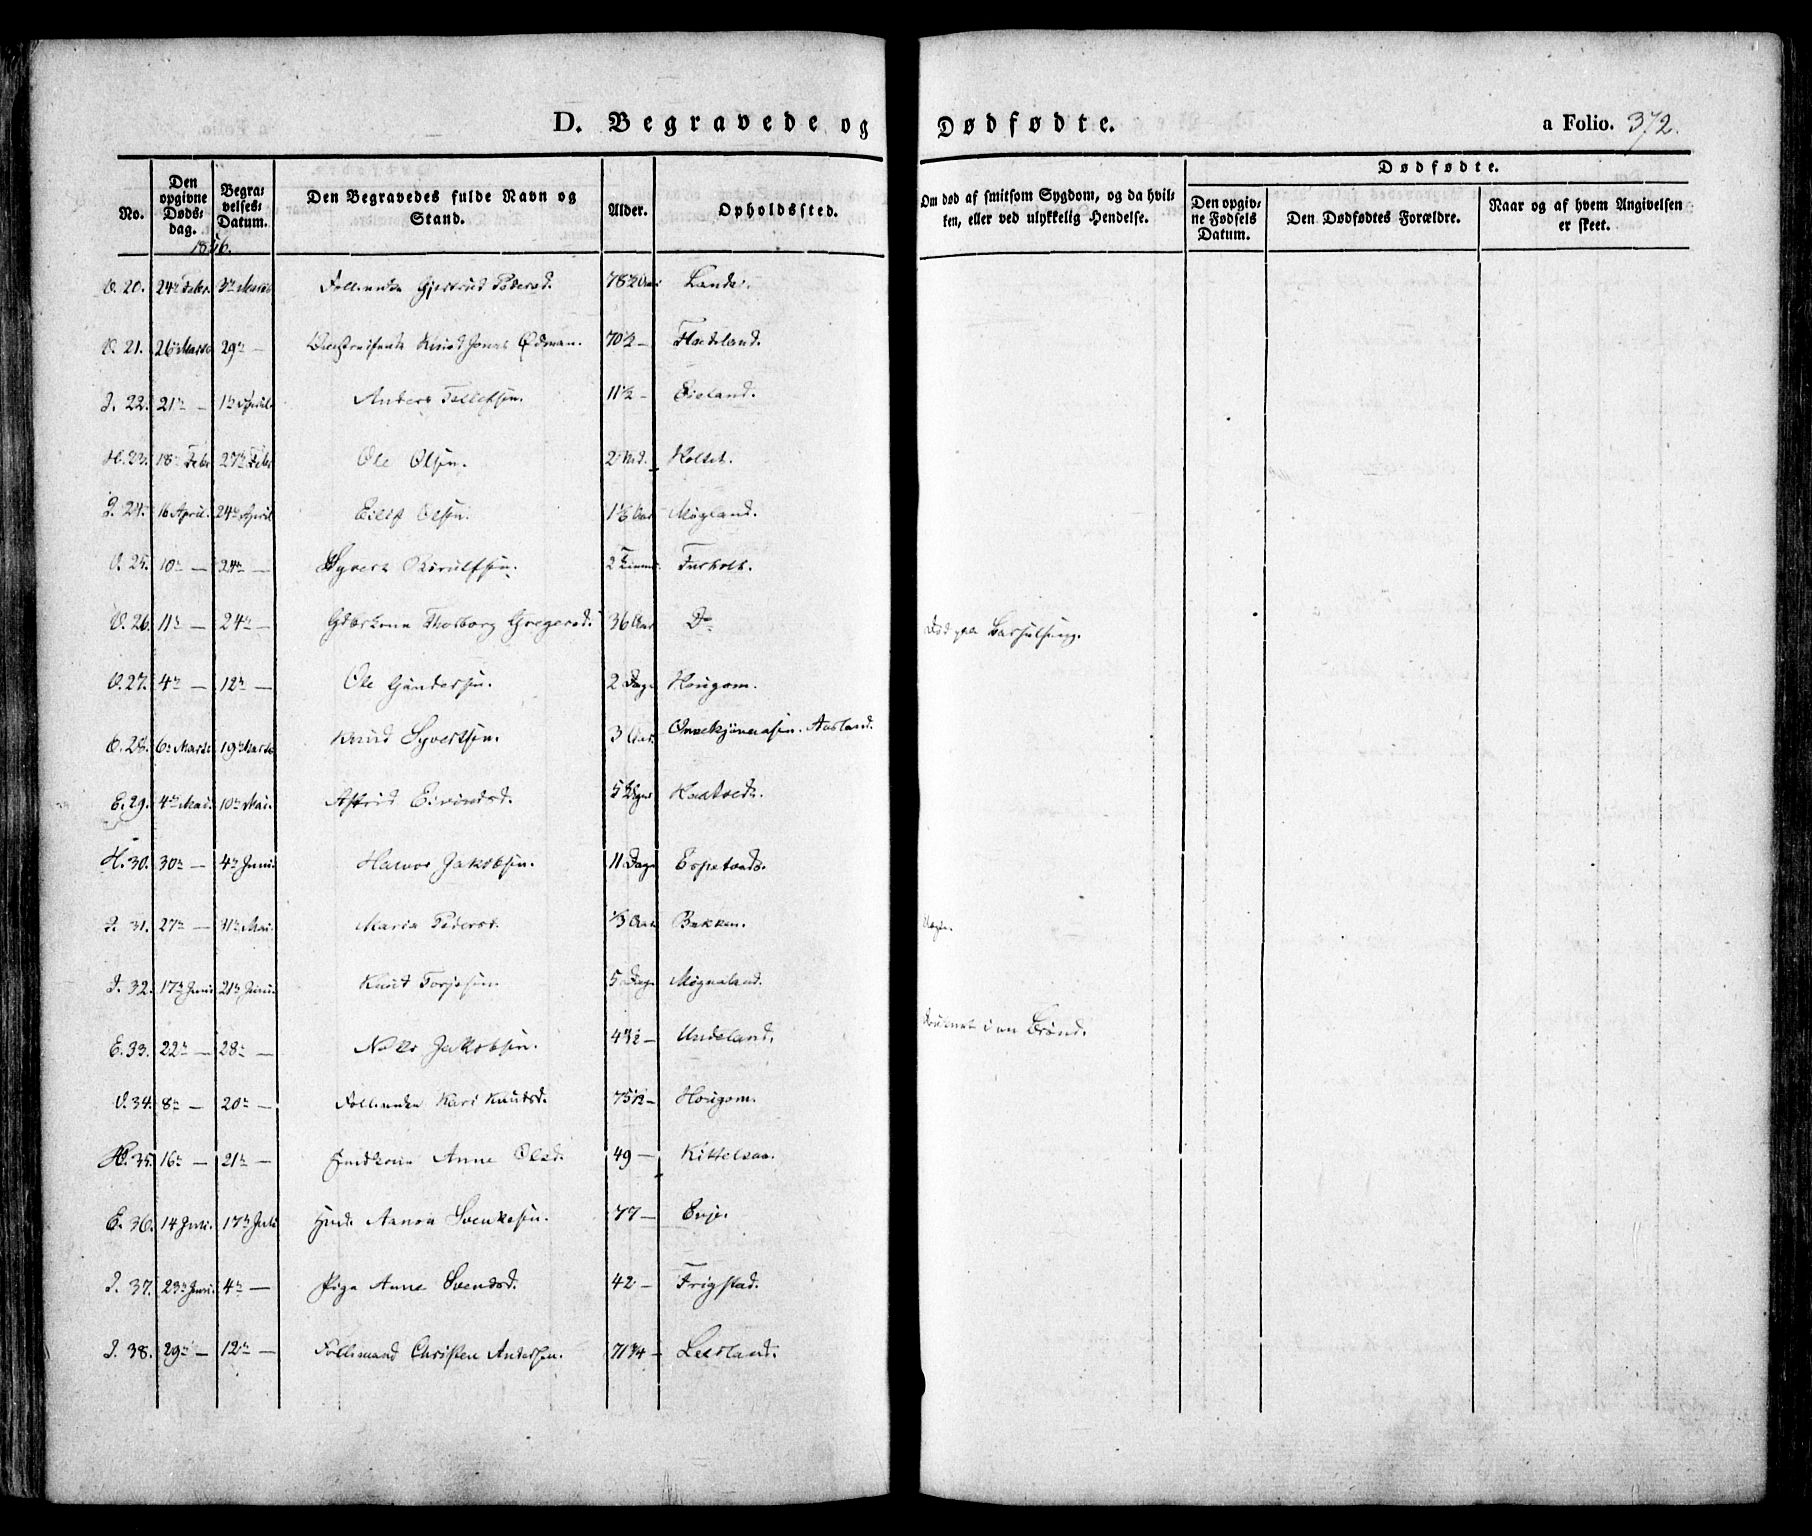 D. Begravede og Dødfødte.
a Folio. 372.
No.
Den opgivne Døds-dag.
Begravelses-Datum.
Den Begravedes fulde Navn og Stand.
Alder.
Opholdssted.
Om død af smitsom Sygdom, og da hvilken, eller ved ulykkelig Hendelse.
Dødfødte.
Den opgivne Fødsels Datum.
Den Dødfødtes Forældre.
Naar og af hvem Angivelsen er skeet.
1846.
20. 24de Febr. 3de Marts Gjertrud Pedersd. 78½ Aar Lande.
21. 26de Marts 29de — Knud Jonas Ødman. 70½ — Fladeland.
22. 21de — 1te April. Anders Tellefsen. 11½ — Eieland.
H. 23. 18de Febr 27de Febr Ole Olsen. 2 Md.
24. 16 April. 24de April Eilef Olsen. Møgland.
25. 10de — 24de — Syvert 2 Timer Furholt.
26. 11te — 24de — Gbrkone Thorborg Gregersd. 36 Aar Do Død paa Barselseng.
27. 4de — 12te — Ole Gundersen. 2 Dage Hougom.
28. 6te Marts 19de Marts Knud Syvertsen. 3 Aar. Aasland.
E. 29. 4de Mai. 10de Mai. Astrid Eivindsd. 5 Dage
H. 30. 30te — 4de Juni. Halvor Jakobsen. 11 Dage Espetveds.
31. 27de — 31te Mai. Maria Pedersd. ⅓ Aar Bakken.
32. 17de Juni 21de Juni. Knut Torjesen 5 Dage
E. 33. 22de — 28de — Niels Jakobsen. 4½ — Undeland. Druknet i en Brønd.
34. 8de — 20de — Kari Knudsd. 75½ — Hougom.
H. 35. 16de — 21de — Anne Olsd. 49 — Kittelsaa.
E. 36. 14 Juli. 17de Juli Svenkesen. 77 — Evje.
37. 23de Juni. 4de — Pige Anne Svendsd. 42 — Frigstad.
38. 29de — 12te — Follemand Christen Andersen. 71¾ — Leirland.